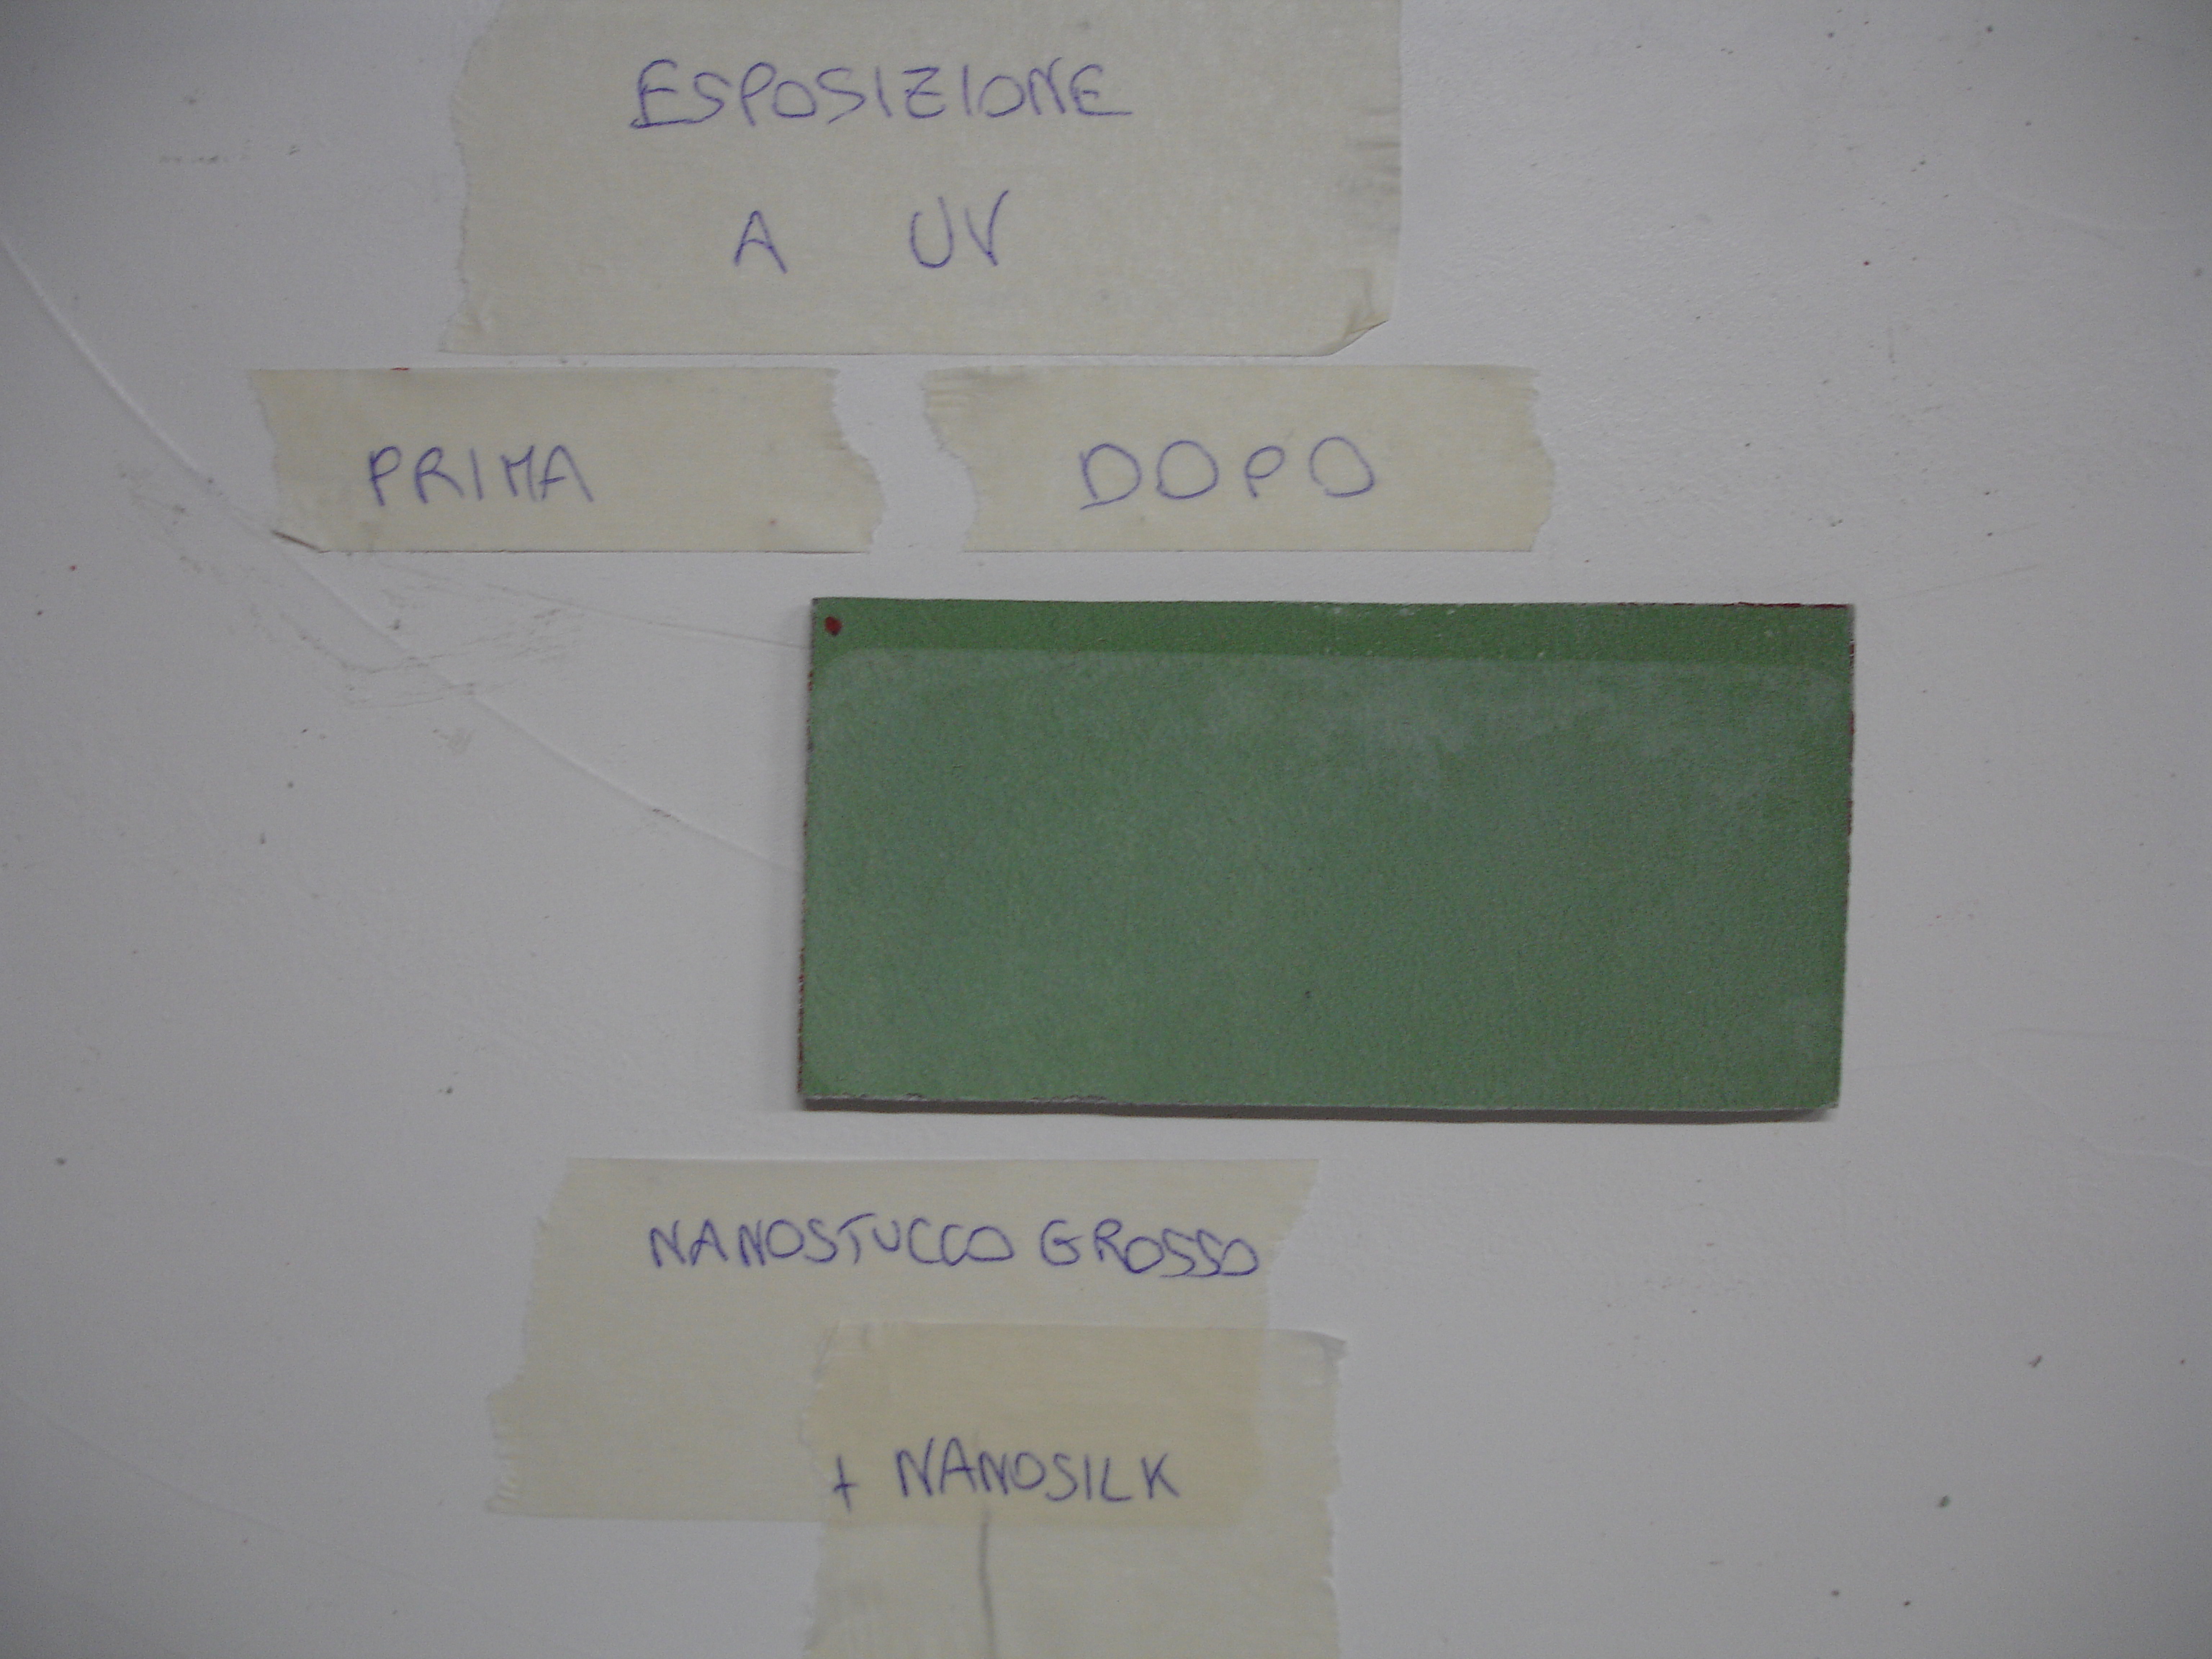 ESPOSIZIONE
A UV
PRIMA
DOPO
NANOSTUCCO GROSSO
+ NANOSILK